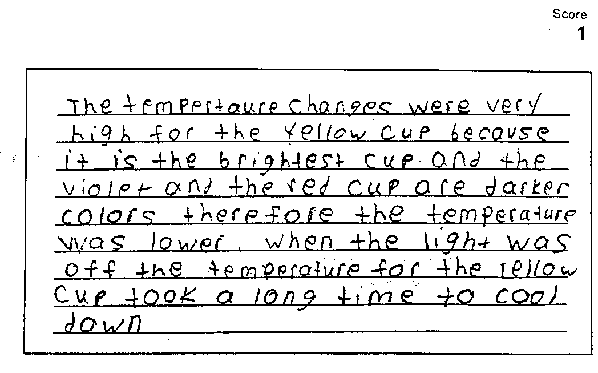 Score
1
The tempertaure changes were very
high for the yellow cup because
it is the brightest cup and the
violet and the red cup are darker
colors therefore the temperature
was lower. when the light was
off the temperature for the yellow
cup took a long time to cool
down